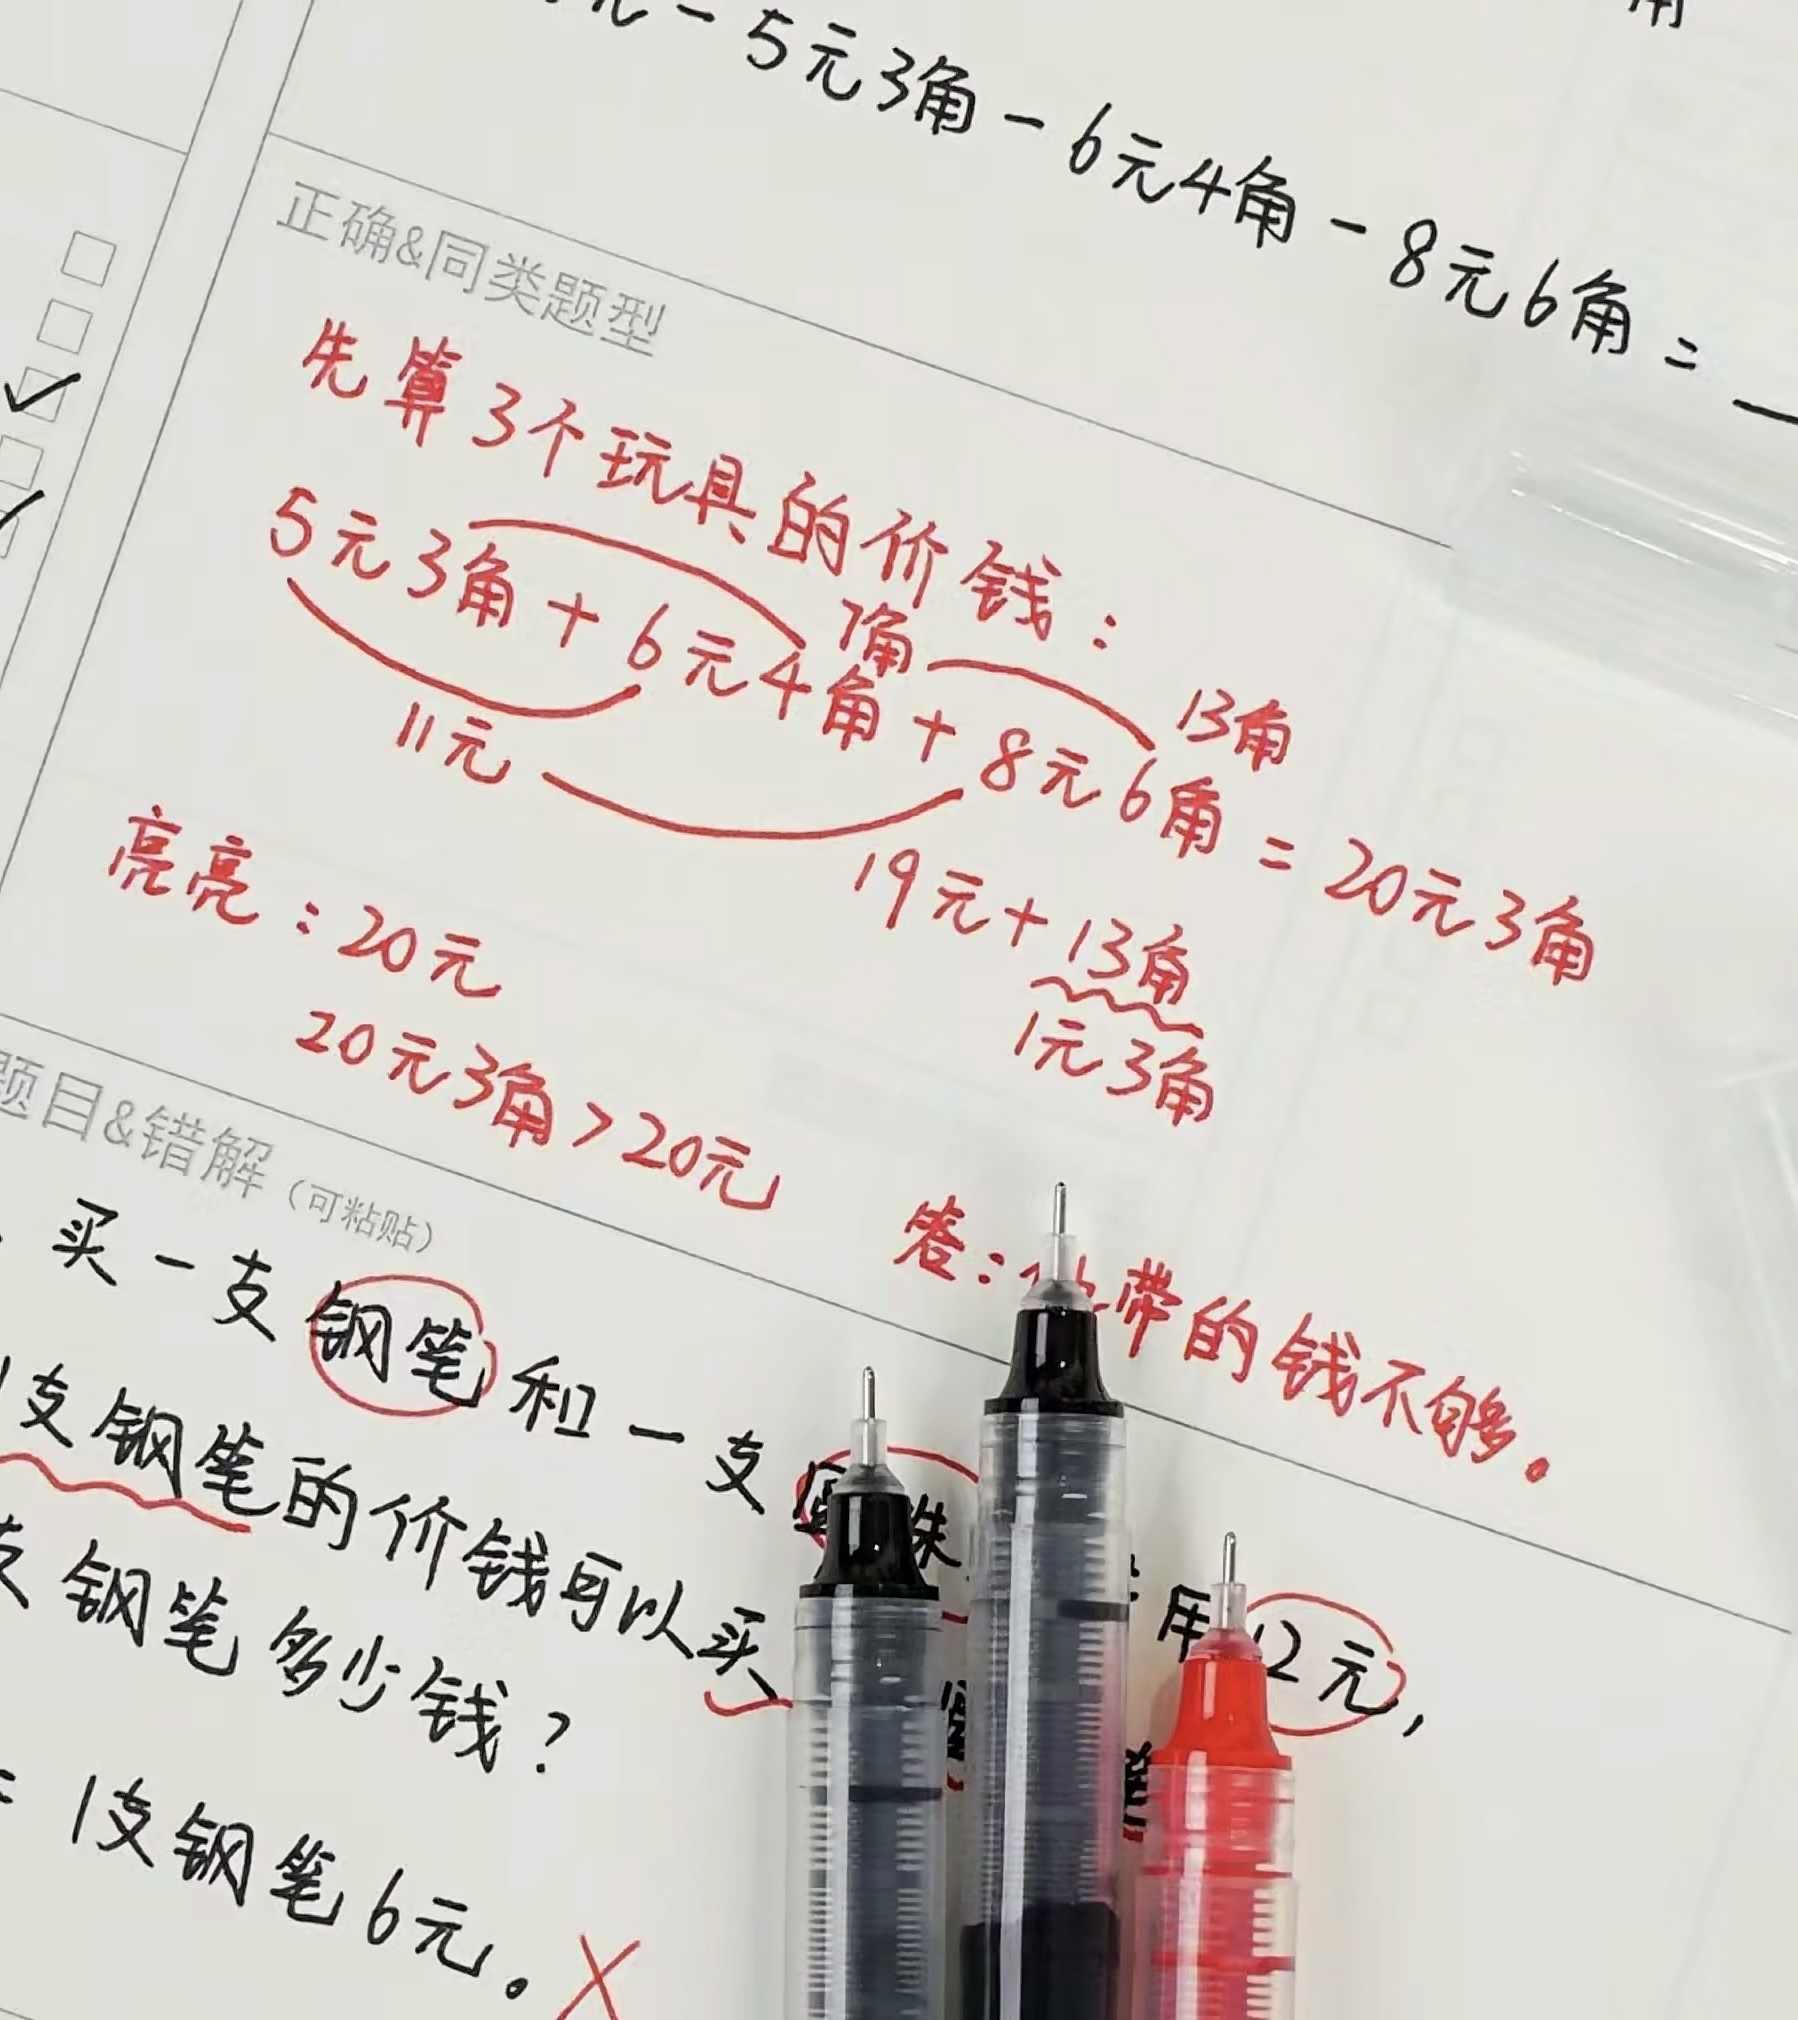 角
元-5元3角-6元4角-8元6角=
正确&同类题型
先算3个玩具的价钱:
5元3角+6元4角+8元6角=20元3角
7角
13角
11元
19元+13角
1元3角
亮亮:20元
20元3角>20元
答: 带的钱不够。
题目&错解(可粘贴)
买一支钢笔和一支 珠 用12元,
1支钢笔的价钱可以买
支钢笔多少钱?
=1支钢笔6元。